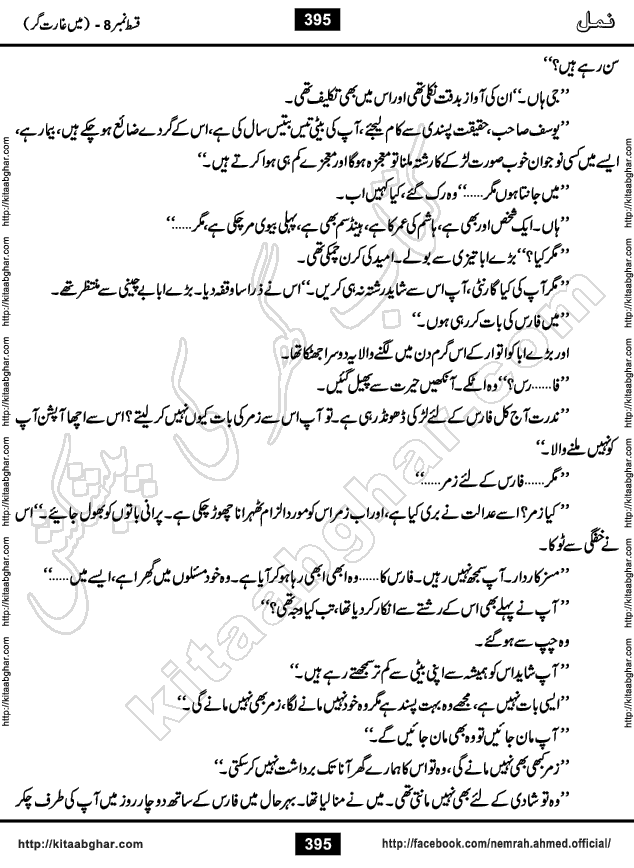 نمل 395 قسط نمبر 8 - (میں غارت گر)
سن رہے ہیں؟‘‘
’’جی ہاں۔‘‘ ان کی آواز بدقت نکلی تھی اور اس میں بھی تکلیف تھی۔
’’یوسف صاحب، حقیقت پسندی سے کام لیجئے، آپ کی بیٹی تیس بتیس سال کی ہے، اس کے گردے ضائع ہو چکے ہیں، بیمار ہے،
ایسے میں کسی نوجوان خوب صورت لڑکے کا رشتہ ملنا تو معجزہ ہوگا اور معجزے کم ہی ہوا کرتے ہیں۔‘‘
’’میں جانتا ہوں مگر......‘‘ وہ رک گئے، کیا کہیں اب۔
’’ہاں۔ ایک شخص اور بھی ہے، ہاشم کی عمر کا ہے، ہینڈسم بھی ہے، پہلی بیوی مر چکی ہے، مگر......‘‘
’’مگر کیا؟‘‘ بڑے ابا تیزی سے بولے۔ امید کی کرن چمکی تھی۔
’’مگر آپ کی کیا گارنٹی، آپ اس سے شاید رشتہ نہ ہی کریں۔‘‘ اس نے ذرا سا وقفہ دیا۔ بڑے ابا بے چینی سے منتظر تھے۔
’’میں فارس کی بات کر رہی ہوں۔‘‘
اور بڑے ابا کو اتوار کے اس گرم دن میں لگنے والا یہ دوسرا جھٹکا تھا۔
’’فا......رس؟‘‘ وہ اٹکے۔ آنکھیں حیرت سے پھیل گئیں۔
’’ندرت آج کل فارس کے لئے لڑکی ڈھونڈ رہی ہے۔ تو آپ اس سے زمر کی بات کیوں نہیں کر لیتے؟ اس سے اچھا آپشن آپ
کو نہیں ملنے والا۔‘‘
’’مگر......فارس کے لئے زمر......‘‘
’’کیا زمر؟ اسے عدالت نے بری کیا ہے، اور اب زمر اس کو مورد الزام ٹھہرانا چھوڑ چکی ہے۔ پرانی باتوں کو بھول جائیے۔‘‘ اس
نے خفگی سے ٹوکا۔
’’مسز کاردار۔ آپ سمجھ نہیں رہیں۔ فارس کا......وہ ابھی ابھی رہا ہو کر آیا ہے۔ وہ خود مسئلوں میں گھرا ہے، ایسے میں......‘‘
’’آپ نے پہلے بھی اس کے رشتے سے انکار کر دیا تھا، تب کیا وجہ تھی؟‘‘
وہ چپ سے ہو گئے۔
’’آپ شاید اس کو ہمیشہ سے اپنی بیٹی سے کم تر سمجھتے رہے ہیں۔‘‘
’’ایسی بات نہیں ہے، مجھے وہ بہت پسند ہے مگر وہ خود نہیں مانے گا، زمر بھی نہیں مانے گی۔‘‘
’’آپ مان جائیں تو وہ بھی مان جائیں گے۔‘‘
’’زمر کبھی بھی نہیں مانے گی، وہ تو اس کا ہمارے گھر آنا تک برداشت نہیں کر سکتی۔‘‘
’’وہ تو شادی کے لئے بھی نہیں مانتی تھی۔ میں نے منا لیا تھا۔ بہرحال میں فارس کے ساتھ دو چار روز میں آپ کی طرف چکر
http://kitaabghar.com 395 http://facebook.com/nemrah.ahmed.official/
http://kitaabghar.com
http://kitaabghar.com
http://kitaabghar.com
http://kitaabghar.com
http://kitaabghar.com
http://kitaabghar.com
http://kitaabghar.com
http://kitaabghar.com
http://kitaabghar.com
http://kitaabghar.com
http://kitaabghar.com
http://kitaabghar.com
کتاب گھر کی پیشکش
kitaabghar.com